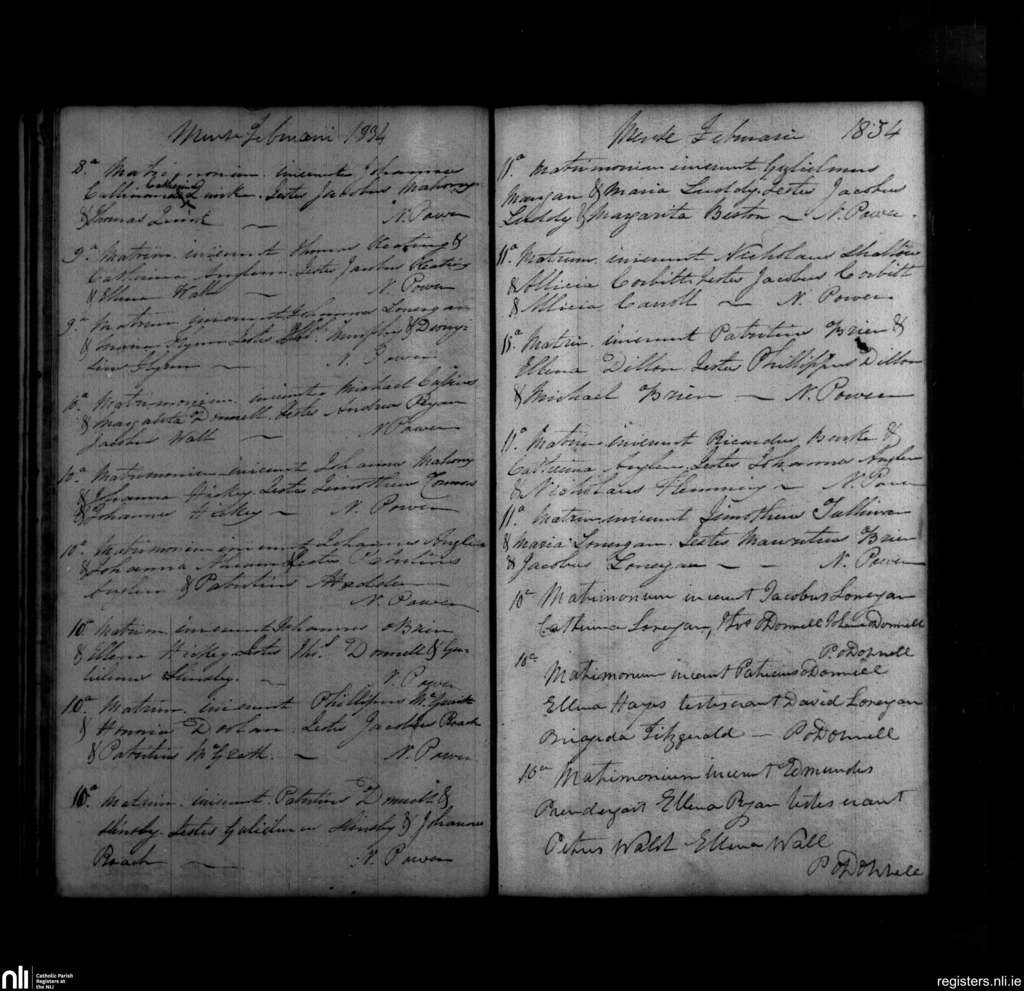 Mense Februarii 1834
8a Matrimonium inierunt Johannes
Callinan & Catherina Quirke. Testes Jacobus Mahony
& Thomas Quirk — N. Power
9a Matrim. inierunt Thomas Keating &
Catherina Anglim. Testes Jacobus Keating
& Ellena Wall — N. Power
9a Matrim. inierunt Lonergan
& Maria Flynn Testes Thos. Murphy & Diony-
sius Flynn — N. Power
Matrimonium inierunt Michael
& Margarita Donnell. Testes Andreas Ryan
Jacobus Wall — N Power
10a Matrimonium inierunt Johannes Mahony
& Johanna Hickey. Testes Timotheus
& Johannes Hickey — N. Power
10a Matrimonium inierunt Johannes Anglim
& Johanna Testes Patritius
& Patritius
N. Power
10a Matrim. inierunt Johannes OBrien
& Ellena Hickey Testes Thos. Donnell & Gu-
lielmus Hinsby. — N. Power
10a Matrim. inierunt Phillipus McGrath
& Honoria Testes Jacobus Roach
& Patritius McGrath. — N. Power
10a Matrim. inierunt Patritius Donnell &
Hinsby. Testes Gulielmus Hinsby & Johannes
Roach — N. Power
Mense Februarii 1834
11a Matrimonium inierunt Gulielmus
Mangan & Maria Luddy. Testes Jacobus
Luddy & Margarita Beston — N. Power.
11a Matrim. inierunt Nicholaus
& Allicia Corbitt. Testes Jacobus Corbitt
& Allicia Carroll — N. Power
11a Matrim. inierunt Patritius Brien &
Ellena Dillon. Testes Phillippus Dillon
& Michael Brien — N. Power
11a Matrim. inierunt Ricardus Burke &
Catherina Anglim. Testes Johannes Anglim
& Nicholaus Flemming — N. Power
11a Matrim. inierunt Timotheus Sullivan
& Maria Lonergan. Testes Mauritius Brien
& Jacobus Lonergan — — N. Power
10a Matrimonium inierunt Jacobus Lonegan
Catherina Lonegan, Thos ODonnell Johna Donnell
P. oDonnell
10a
Matrimonium inierunt Patricius oDonnell
Ellena Hayes testes erant David Lonegan
Brigida Fitzgerald — P oDonnell
10a Matrimonium inierunt Edmundus
Prendergast Ellena Ryan testes erant
Petrus Walsh Ellena Wall
P oDonnell
nli Catholic Parish
Registers at
the NLI
registers.nli.ie